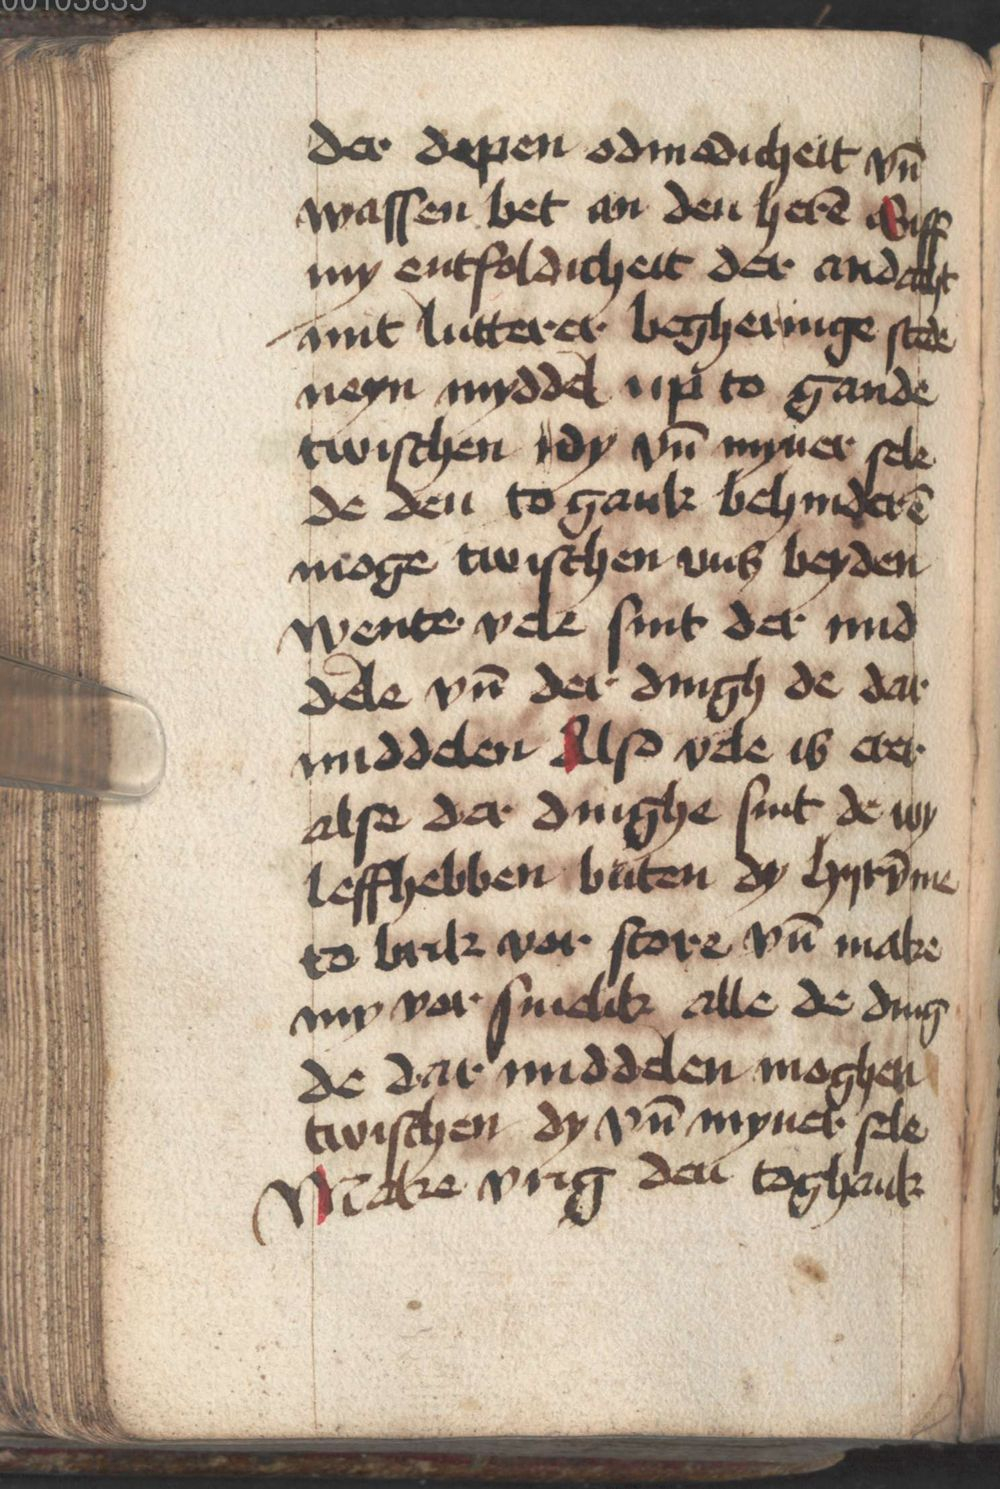 00103835
der depen odmodicheit vn̄
wassen bet an den herē Giff
my entfoldicheit der andacht
mit lutterer begheringe stede
neyn myddel up to gande
twischen dy vn̄ myner sele
de den to gank behinderē
moge twischen vns beyden
wente vele sint der mid
dele vn̄ der dingh de dar
middelen Also vele is erer
alse der dinghe sint de wy
leffhebben buten dy hyrv̄me
to brik vor store vn̄ make
my vor smelik alle de ding
de dar middelen moghen
twischen dy vn̄ myner sele
Make vrig den toghank